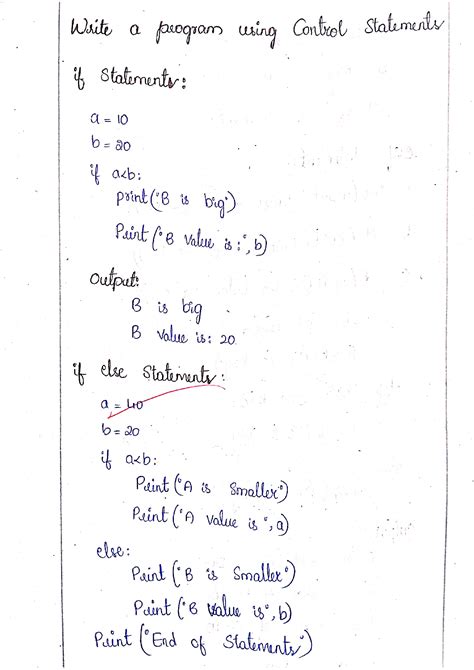 Write a program using Control Statements
if Statements:
a = 10
b = 20
if a<b:
print("B is big")
Print ("B value is:", b)
Output:
B is big
B value is: 20
if else Statements:
a = 40
b = 20
if a<b:
Print ("A is Smaller")
Print ("A value is", a)
else:
Print ("B is Smaller")
Print ("B value is", b)
Print ("End of Statements")